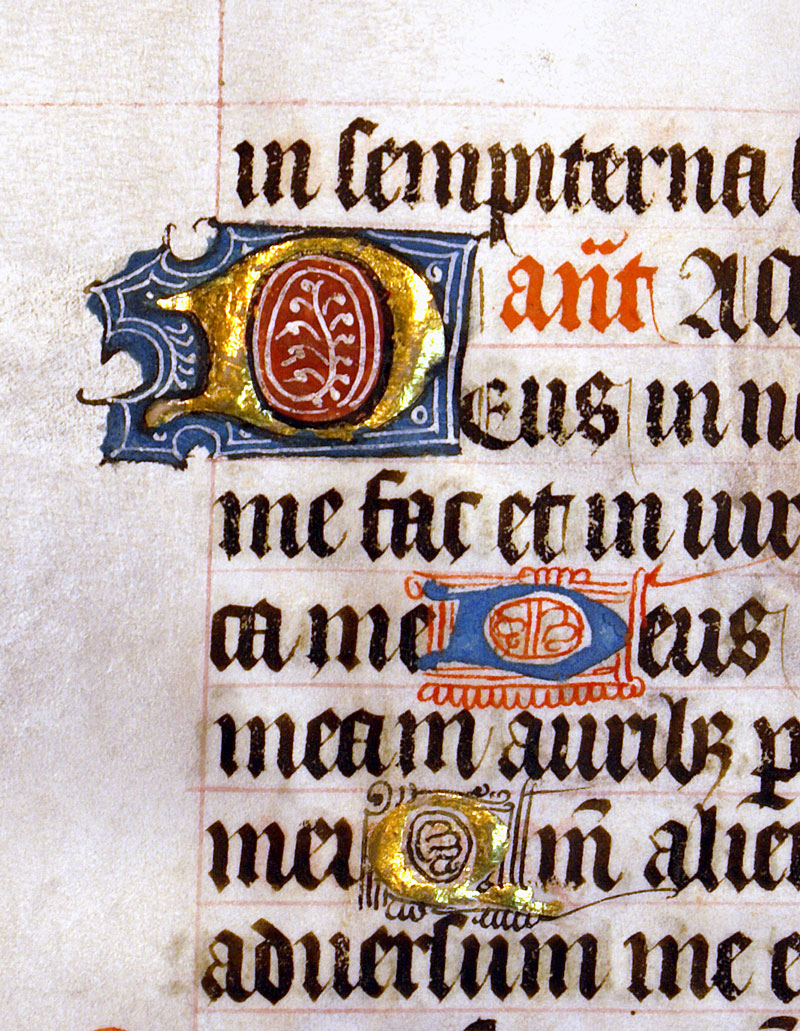 in sempiterna
Dan̄t
Deus in
me fac et in uir
ca me Deus
meam aurib₃
mei Qm̄ alien
aduersum me